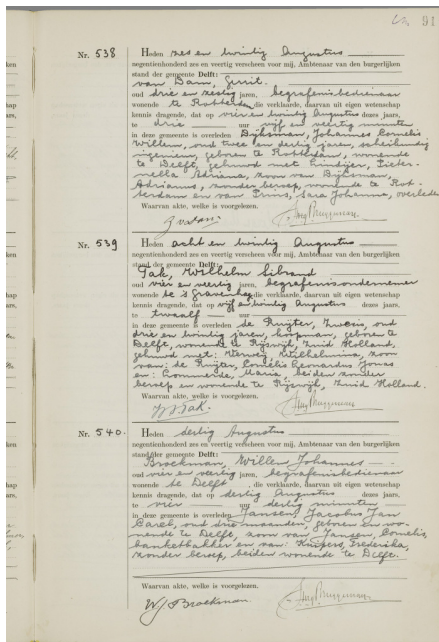 91
Nr. 538 Heden zes en twintig Augustus
negentienhonderd zes en veertig verscheen voor mij, Ambtenaar van den burgerlijken
stand der gemeente Delft:
van Dam, Gerrit,
oud drie en zestig jaren, begrafenisbedienaar
wonende te Rotterdam, die verklaarde, daarvan uit eigen wetenschap
kennis dragende, dat op vier en twintig Augustus dezes jaars,
te drie uur vijf en veertig minuten
in deze gemeente is overleden Dijksman, Johannes Cornelis
Willem, oud twee en dertig jaren, scheikundig
ingenieur, geboren te Rotterdam, wonende
te Delft, gehuwd met: Lindijer, Pieter-
nella Adriana, zoon van Dijksman,
Adrianus, zonder beroep, wonende te Rot-
terdam en van Prins, Sara Johanna, overleden
Waarvan akte, welke is voorgelezen.
Nr. 539 Heden acht en twintig Augustus
negentienhonderd zes en veertig verscheen voor mij, Ambtenaar van den burgerlijken
stand der gemeente Delft:
Tak, Wilhelm Sibrand
oud vier en veertig jaren, begrafenisondernemer
wonende te 's Gravenhage, die verklaarde, daarvan uit eigen wetenschap
kennis dragende, dat op vijf en twintig Augustus dezes jaars,
te twaalf uur
in deze gemeente is overleden de Ruijter, oud
drie en twintig jaren, koopman, geboren te
Delft, wonende te Rijswijk, Zuid Holland,
gehuwd met: Wilhelmina, zoon
van: de Ruijter, Cornelis Leonardus Jonas
en: Maria, beiden zonder
beroep en wonende te Rijswijk, Zuid Holland.
Waarvan akte, welke is voorgelezen.
W.S. Tak.
Nr. 540. Heden dertig Augustus
negentienhonderd zes en veertig verscheen voor mij, Ambtenaar van den burgerlijken
stand der gemeente Delft:
Broekman, Willem Johannes
oud vier en veertig jaren, begrafenisbedienaar
wonende te Delft, die verklaarde, daarvan uit eigen wetenschap
kennis dragende, dat op dertig Augustus dezes jaars,
te vier uur dertig minuten
in deze gemeente is overleden Jansen, Jacobus Jan
Carel, oud drie maanden, geboren en wo-
nende te Delft, zoon van Jansen, Cornelis,
banketbakker en van: Kuipers, Frederika,
zonder beroep, beiden wonende te Delft.
Waarvan akte, welke is voorgelezen.
W.J. Broekman